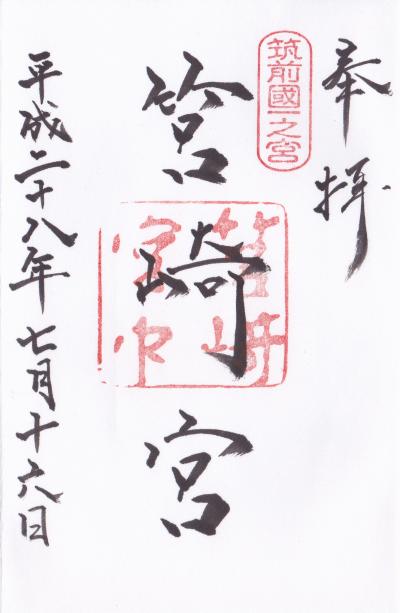 奉拝
筑前國一之宮
筥崎宮
平成二十八年七月十六日